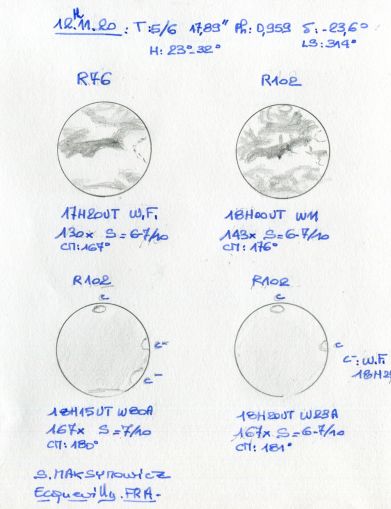 12.11.20 : T:5/6 17,89" Ph: 0,959 δ: -23,6°
H: 23°-32° LS: 314°
R76 R102
17H20UT W.F. 18H00UT W11
130x S=6-7/10 143x S=6-7/10
CM: 167° CM: 176°
R102 R102
c c
c+ c
c- c-: W.F.
18H15UT W80A 18H20UT W23A
167x S=7/10 167x S=6-7/10
CM: 180° CM: 181°
S.MAKSYMOWICZ
Ecquevilly.FRA-